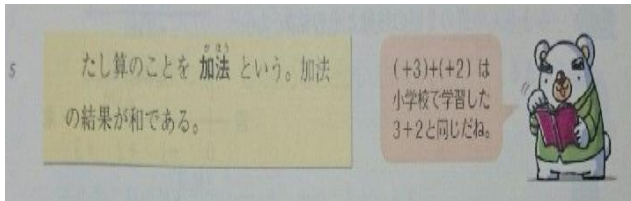 5
たし算のことを 加法 という。加法
の結果が和である。
(+3)+(+2) は
小学校で学習した
3+2と同じだね。